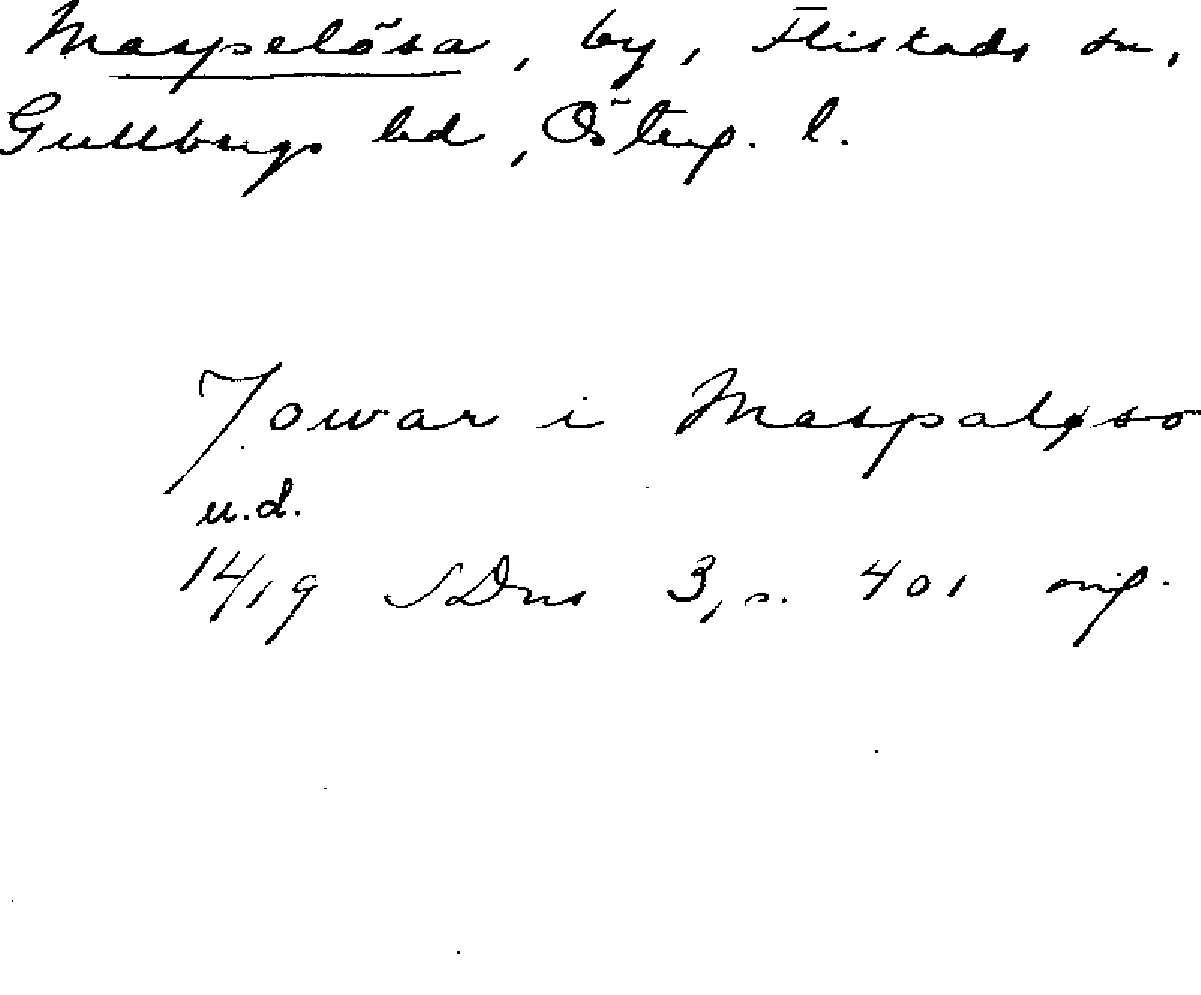 Maspelösa, by, Flistads sn,
Gullbergs hd, Österg. l.
Jowar i Maspaløso
u.d.
14/19 SDns 3, s. 401 orig.